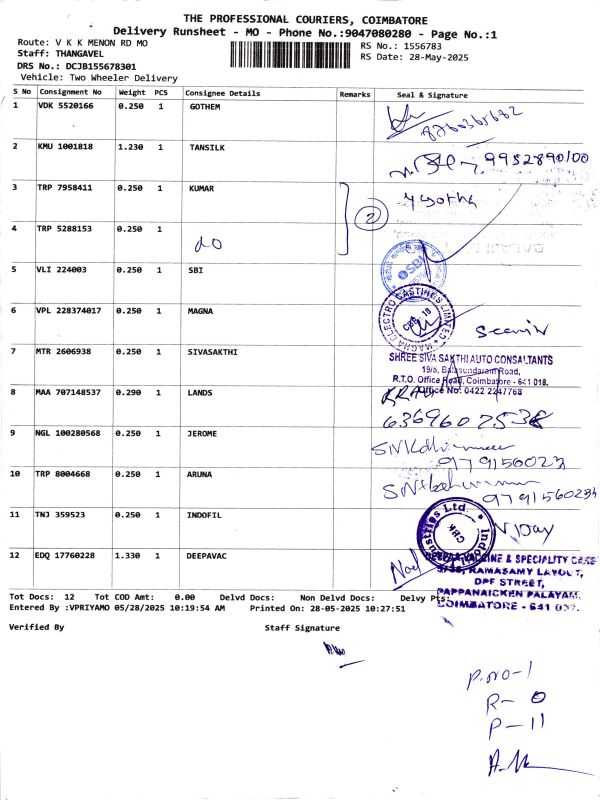 THE PROFESSIONAL COURIERS, COIMBATORE
Delivery Runsheet - MO - Phone No.:9047080280 - Page No.:1
Route: V K K MENON RD MO
RS No.: 1556783
Staff: THANGAVEL
RS Date: 28-May-2025
DRS No.: DCJB155678301
Vehicle: Two Wheeler Delivery
S No Consignment No Weight PCS Consignee Details Remarks Seal & Signature
1 VDK 5520166 0.250 1 GOTHEM
2 KMU 1001818 1.230 1 TANSILK 9952890100
3 TRP 7958411 0.250 1 KUMAR
2
4 TRP 5288153 0.250 1 do
5 VLI 224003 0.250 1 SBI
SBI
6 VPL 228374017 0.250 1 MAGNA
MAGNA ELECTRO CASTINGS LIMITED
CBE - 18
7 MTR 2606938 0.250 1 SIVASAKTHI
SHREE SIVA SAKTHI AUTO CONSALTANTS
19/5, Balasundaram Road,
R.T.O. Office Road, Coimbatore - 641 018.
Office No: 0422 2247768
8 MAA 707148537 0.290 1 LANDS
9 NGL 100280568 0.250 1 JEROME
10 TRP 8004668 0.250 1 ARUNA
11 TNJ 359523 0.250 1 INDOFIL
Indofil Industries Ltd.
CBK
12 EDQ 17760228 1.330 1 DEEPAVAC
Noel
& SPECIALITY
RAMASAMY LAYOUT,
DPF STREET,
PAPPANAICKEN PALAYAM,
COIMBATORE - 641 037.
Tot Docs: 12 Tot COD Amt: 0.00 Delvd Docs: Non Delvd Docs: Delvy Pts:
Entered By :VPRIYAMO 05/28/2025 10:19:54 AM Printed On: 28-05-2025 10:27:51
Verified By Staff Signature
P.NO-1
R- 0
P-11